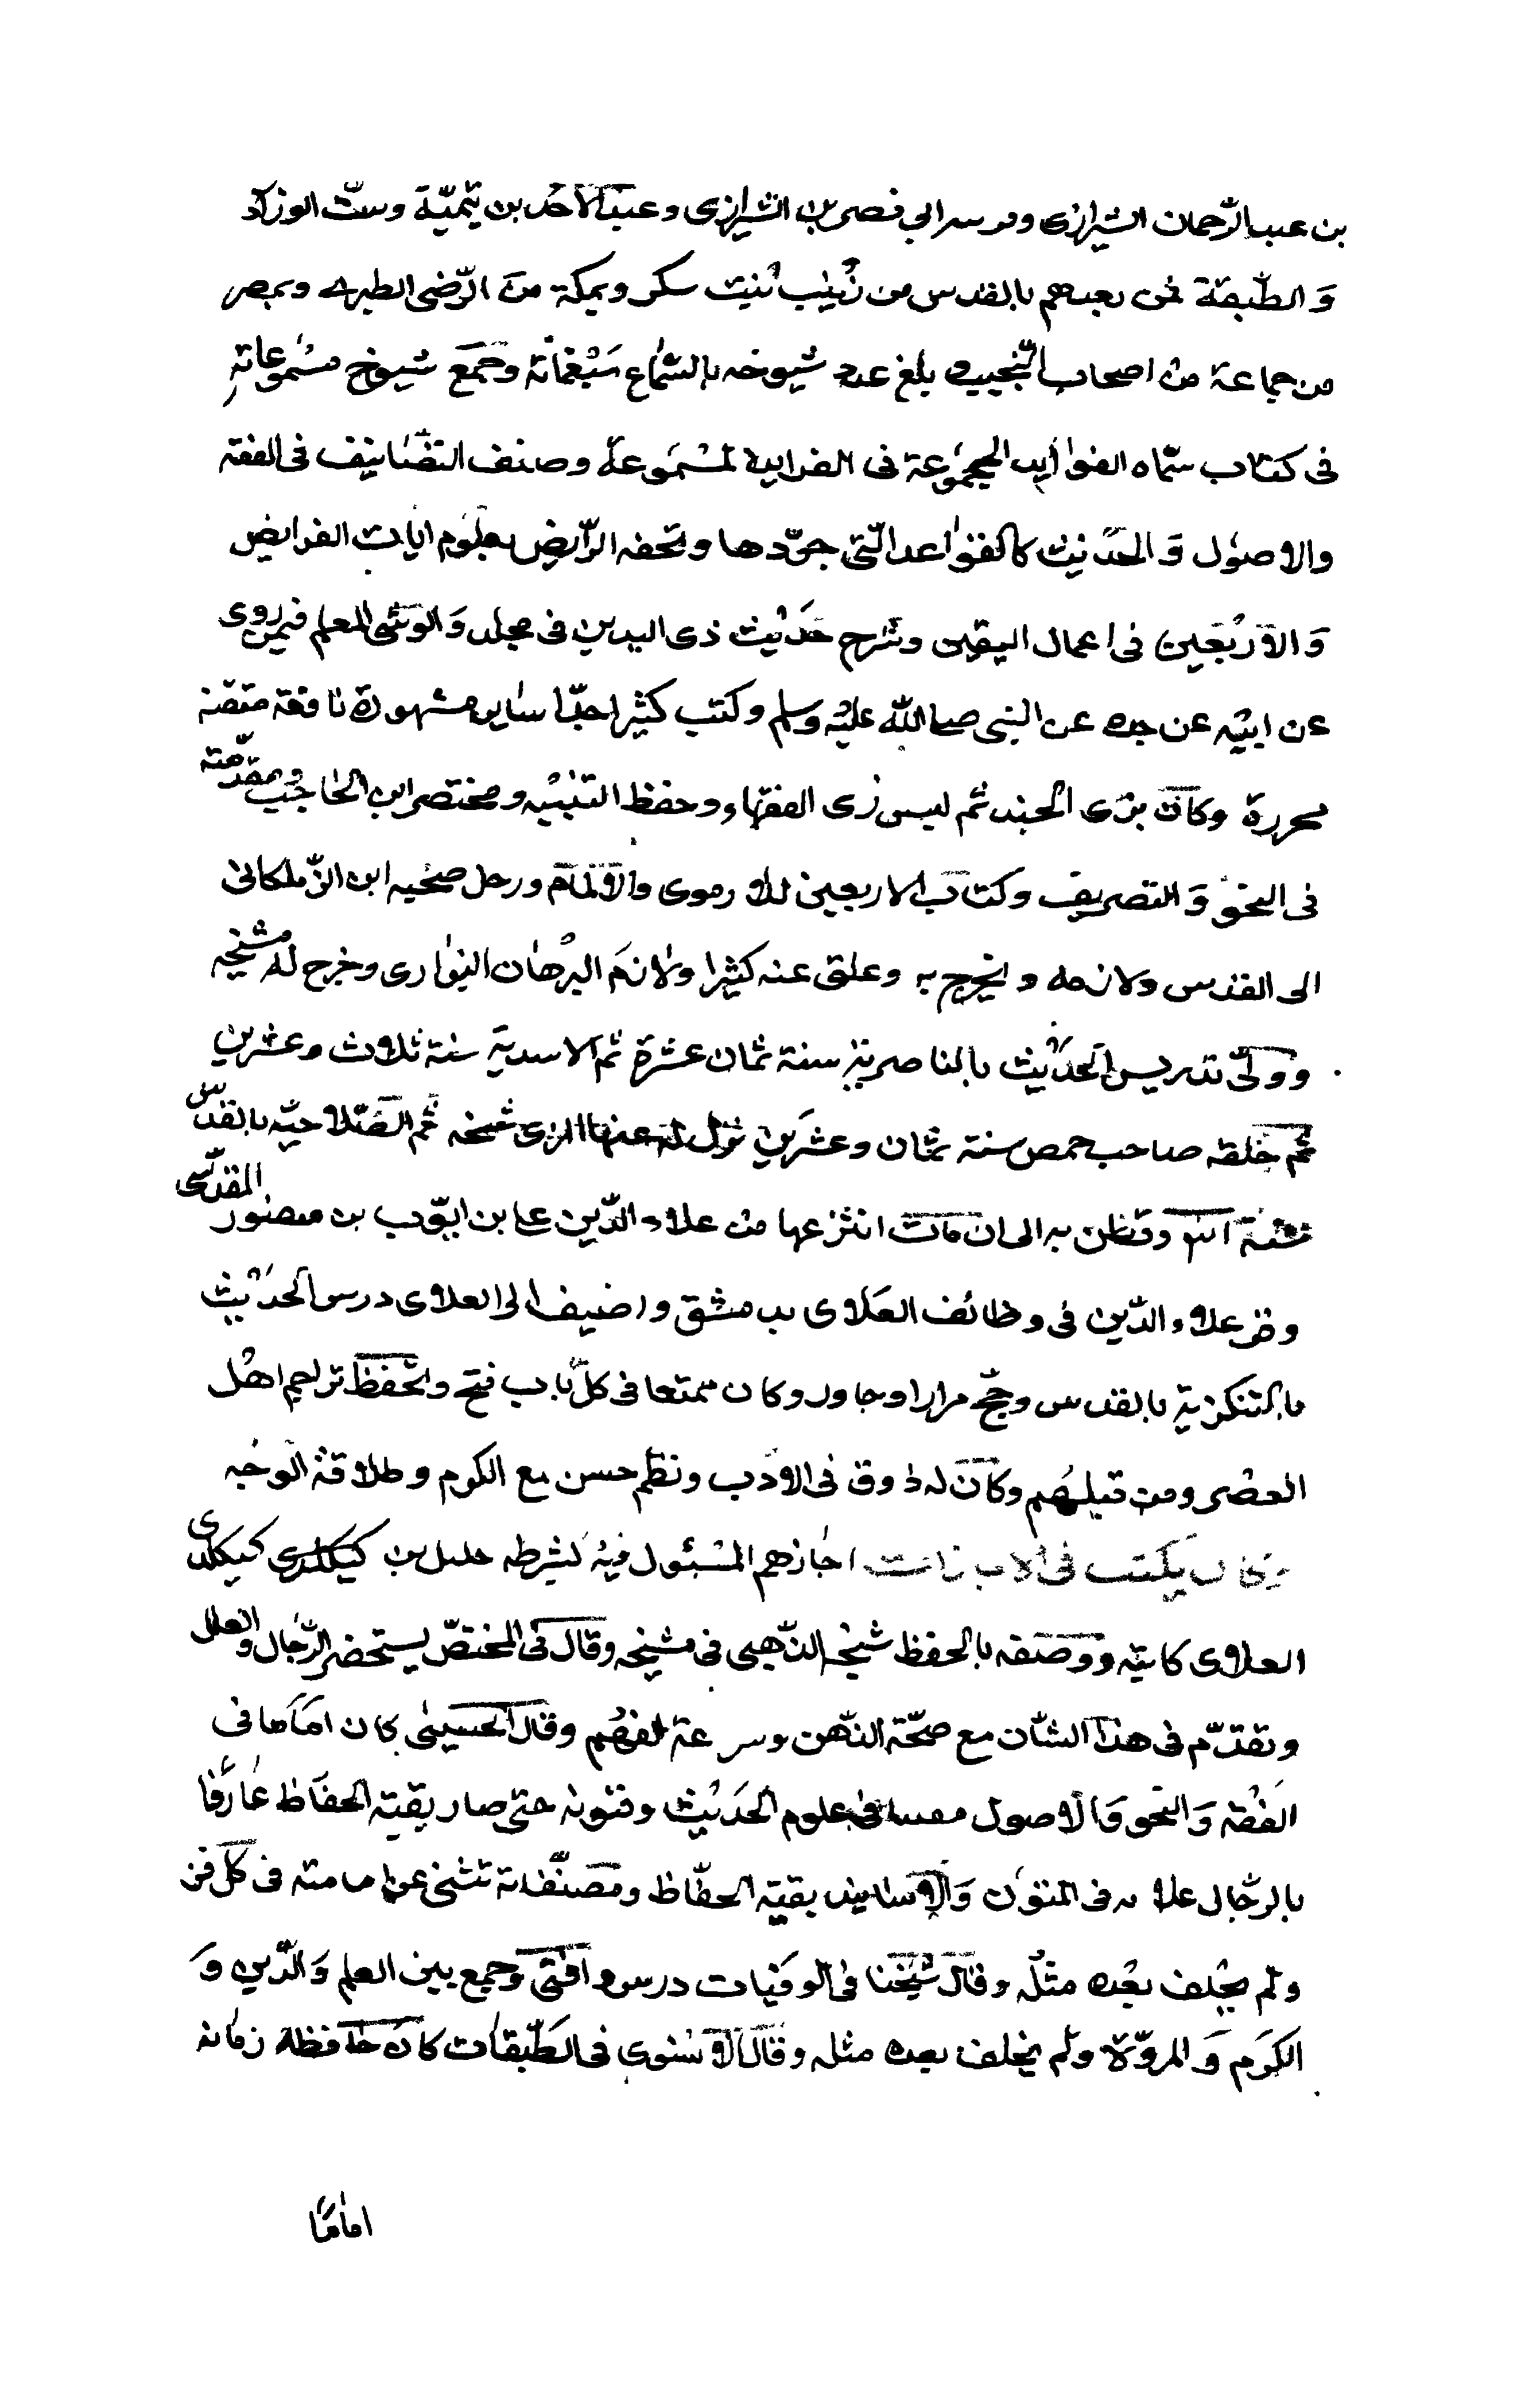 بن عبد الرّحمان الشيرازى وموسى ابي نصر بن الشيرازى وعبد الاحد بن تيميّة وستّ الوزراء
وَ الطّبقة فمن بعدهم بالقدس من زينب بنت سكر وبمكة من الرّضى الطبرى وبمصر
من جماعة من اصحاب النّجيب بلغ عدد شيوخه بالسّماع سَبْعَمائة وجَمَع شيوخ مسْموعاتهِ
فى كتاب سمّاه الفوائد المجموُعة فى الفرايد المسْمَوعة وصنف التصَانيف فى الفقه
والاصول وَ الحَديث كالقواعد الّتى جوّدها وتحفه الرّايض بعلوم ايات الفرايض
وَ الاَرْبَعين فى اعمال المتقين وشرح حَديْث ذى اليدين فى مجلد وَ الوشى المعلم فيمن روى
عن ابيْه عن جده عن النبى صلى اللّه عليْه وسلم وكتب كثيرا جدّا ساير مشهورة نافعة متقنه
محررة وكان بزى الجند ثم لبس زى الفقهاء وحفظ التنبيْه ومختصر ابن الحاجب ومقدّمته
فى النحو وَ التصريف وكتاب الاربعين للارموى والالمام ورحل صحبه ابن الزّملكانى
الى القدس ولازمه وتخرج به وعلق عنه كثيرا ولازم البرُهان الفزارى وخرج له مشيخه
وولّى تدريس الحَديْث بالناصرية سنة ثمان عشرة ثم الاسدية سنة ثلاث وعشرين
ثم حلقه صاحب حمص سنة ثمان وعشَرين نزل له عنها المزى شيخه ثم الصَّلاحيّه بالقدس
سَنة وقطن به الى ان مات انتزعها من علاء الدّين على بن ايّوب بن منصور المقدّسى
وقرر علاء الدّين فى وظائف العَلاى بدمشق واضيف الى العلاى درس الحَديْث
بالتنكزية بالقدس وحجّ مرارا وجاور وكان ممتعا فى كلّ باب فتح ويحفظ تراجم اهْل
العصْر ومن قبلهُم وكان له ذوق فى الاَدب ونظم حسن مع الكرم وطلاقة الوجْه
وكان يكتب فى الاجازات اجازهم المسْئول فيْه بشرطه خليل بن كيكلدى
العلاى كاتبه ووصفه بالحفظ شيخه الذّهبى فى مشيخه وقال فى المختصّ يستحضر الرّجال والعلل
وتقدّم فى هذا الشّأن مع صحّة الذّهن وسرعة الفهُم وقال الحسينى كان امَامَا فى
الفقه وَ النحو وَ الاصول مفننا فى علوم الحَديْث وفنونه حتى صار بقية الحفّاظ عَارفا
بالرجَال علامه فى المتون وَ الاسانيد بقيّة الحفّاظ ومصنّفاته تنبئ عن امامته فى كلّ فن
ولم يخْلف بعْده مثلُه وقال شيْخنا فى الوفَيات درس وافتى وجمع بين العلم وَ الدّين وَ
الكرَم وَ المروّة ولم يخلف بعده مثله وقال الاسْنوى فى الطّبقات كان حافظة زمانه
امامًا